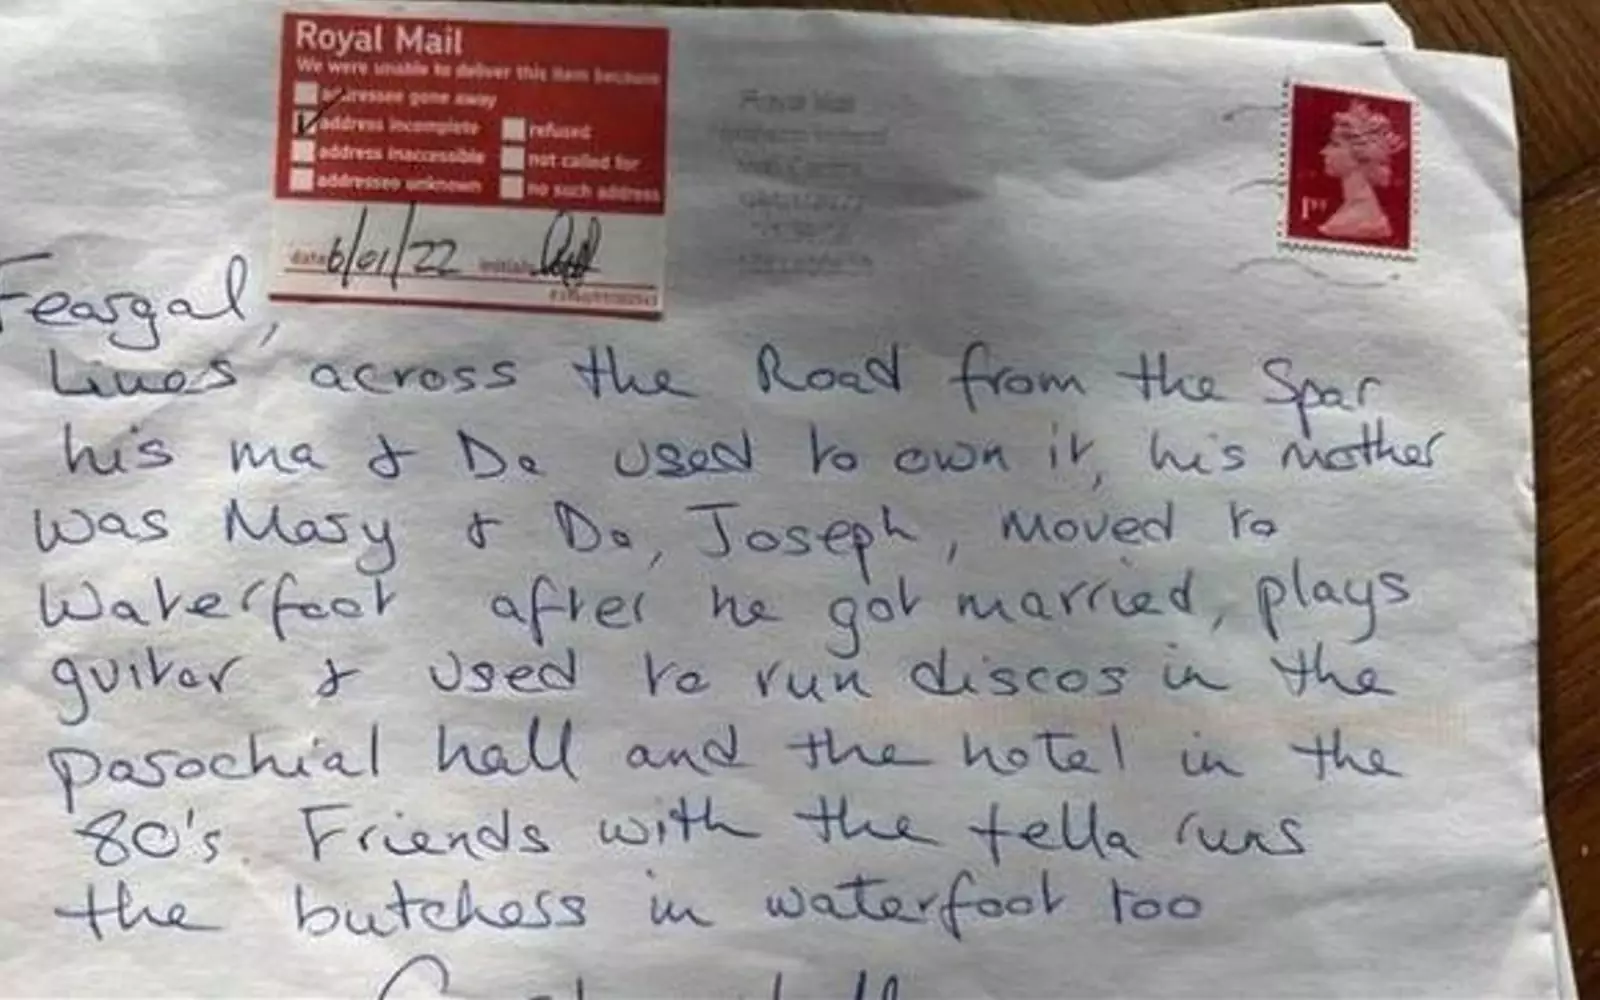 Royal Mail
We were unable to deliver this item because
addressee gone away
address incomplete
refused
address inaccessible
not called for
addressee unknown
no such address
date 6/01/22 initials
1ST
Feargal,
Lives across the Road from the Spar
his ma & Da used to own it, his mother
was Mary & Da, Joseph, moved to
Waterfoot after he got married, plays
guitar & used to run discos in the
parochial hall and the hotel in the
80's. Friends with the fella runs
the butchers in waterfoot too